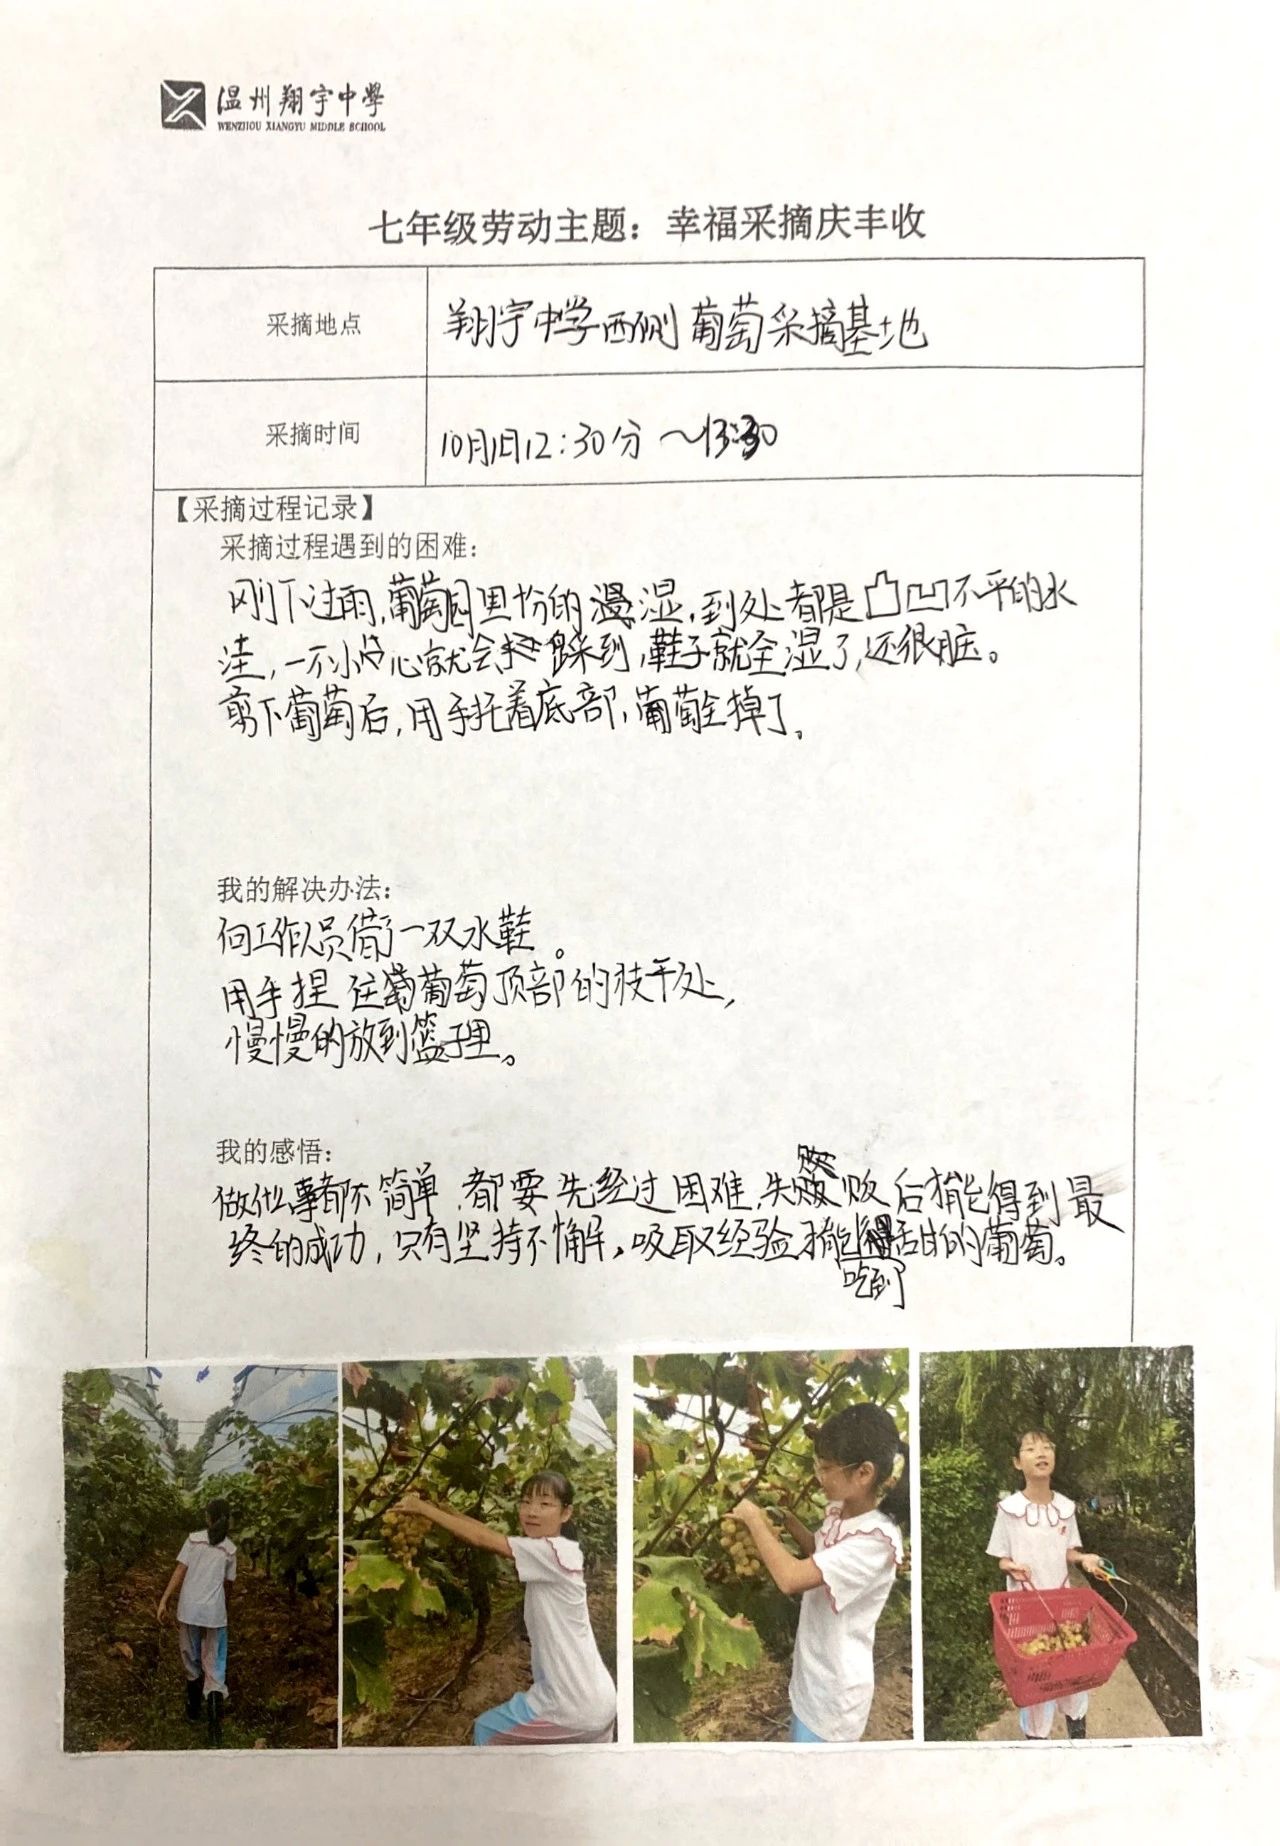 温州翔宇中學
WENZHOU XIANGYU MIDDLE SCHOOL
七年级劳动主题：幸福采摘庆丰收
采摘地点
翔宇中学西侧葡萄采摘基地
采摘时间
10月1日12:30分～13:30
【采摘过程记录】
采摘过程遇到的困难：
刚下过雨,葡萄园里份的湿,到处都是凸凹不平的水
洼,一不小心就会踩到,鞋子就全湿了,还很脏。
剪下葡萄后,用手托着底部,葡萄全掉了。
我的解决办法：
向工作人员借了一双水鞋。
用手捏住葡萄顶部的枝干处,
慢慢的放到篮子里。
我的感悟：
做什么事都不简单,都要先经过困难,失败后才能得到最
终的成功,只有坚持不懈,吸取经验,才能吃到甜的葡萄。